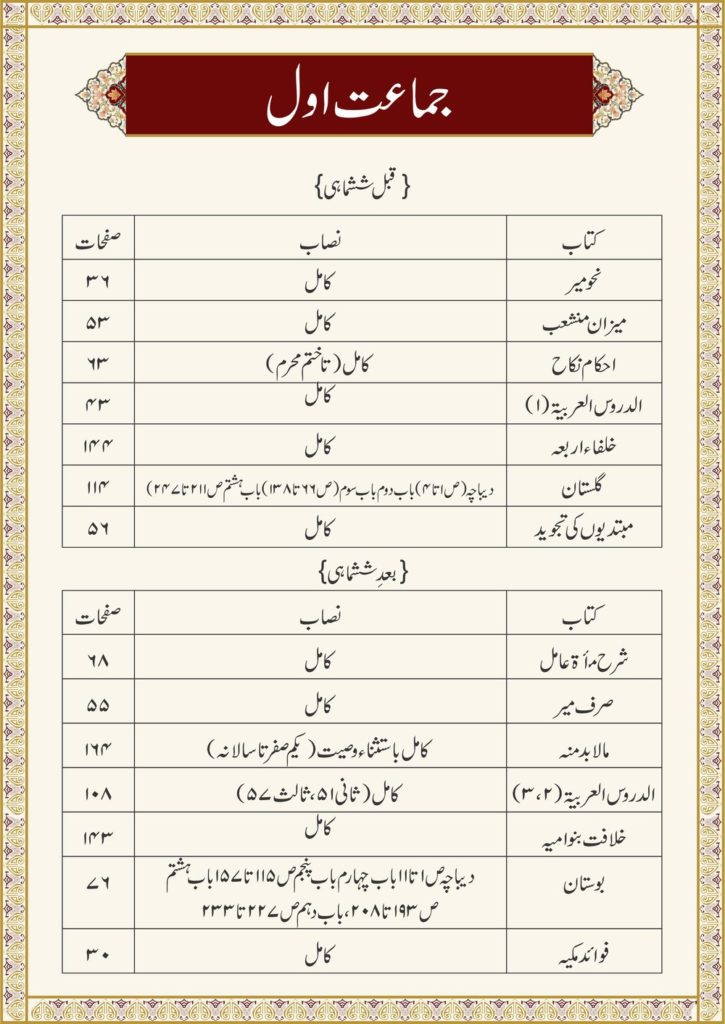 جماعت اول
{قبل ششماہی}
کتاب نصاب صفحات
نحومیر کامل ۳۶
میزان منشعب کامل ۵۳
احکام نکاح کامل (تا ختم محرم) ۶۳
الدروس العربیۃ (۱) کامل ۴۳
خلفاء اربعہ کامل ۱۴۴
گلستان دیباچہ (ص ۱ تا ۴) باب دوم باب سوم (ص ۶۶ تا ۱۳۸) باب ہشتم ص ۲۱۱ تا ۲۴۷) ۱۱۴
مبتدیوں کی تجوید کامل ۵۶
{بعدِ ششماہی}
کتاب نصاب صفحات
شرح مأۃ عامل کامل ۶۸
صرف میر کامل ۵۵
مالابدمنہ کامل باستثناء وصیت (یکم صفر تا سالانہ) ۱۶۴
الدروس العربیۃ (۲،۳) کامل (ثانی ۵۱، ثالث ۵۷) ۱۰۸
خلافت بنوامیہ کامل ۱۴۳
بوستان دیباچہ ص ۱ تا ۱۱ باب چہارم باب پنجم ص ۱۱۵ تا ۱۵۷ باب ہشتم ۷۶
ص ۱۹۳ تا ۲۰۸، باب دہم ص ۲۲۷ تا ۲۳۳
فوائد مکیہ کامل ۳۰